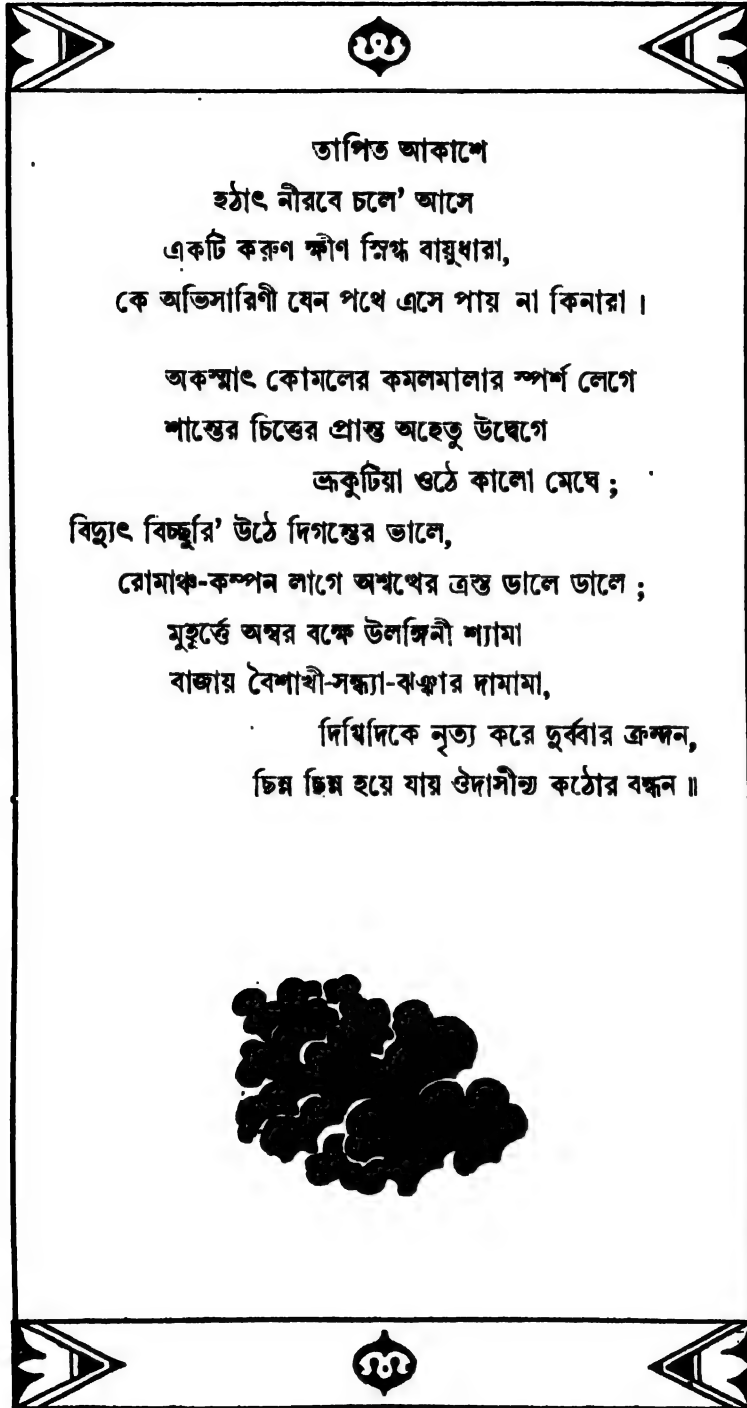 তাপিত আকাশে
হঠাৎ নীরবে চলে’ আসে
একটি করুণ ক্ষীণ স্নিগ্ধ বায়ুধারা,
কে অভিসারিণী যেন পথে এসে পায় না কিনারা ।
অকস্মাৎ কোমলের কমলমালার স্পর্শ লেগে
শান্তের চিত্তের প্রান্ত অহেতু উদ্বেগে
ভ্রূকুটিয়া ওঠে কালো মেঘে ;
বিদ্যুৎ বিচ্ছুরি’ উঠে দিগন্তের ভালে,
রোমাঞ্চ-কম্পন লাগে অশ্বত্থের ত্রস্ত ডালে ডালে ;
মুহূর্ত্তে অম্বর বক্ষে উলঙ্গিনী শ্যামা
বাজায় বৈশাখী-সন্ধ্যা-ঝঞ্ঝার দামামা,
দিগ্বিদিকে নৃত্য করে দুর্ব্বার ক্রন্দন,
ছিন্ন ছিন্ন হয়ে যায় ঔদাসীন্য কঠোর বন্ধন ॥